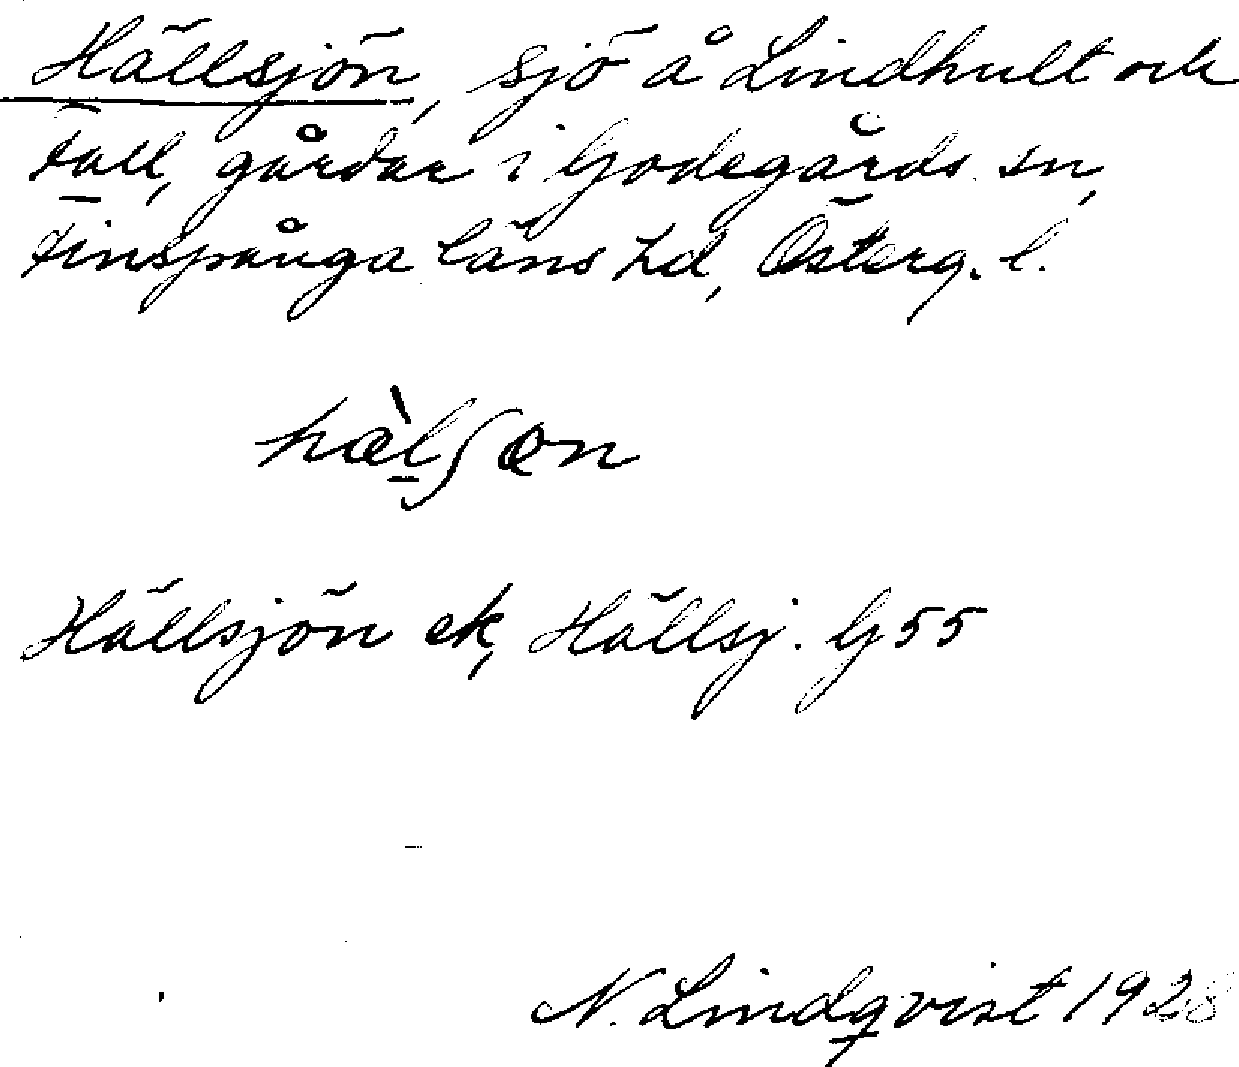 Hällsjön, sjö å Lindhult och
Fall, gårdar i Godegårds sn,
Finspånga läns hd, Österg. l.
hæ̀lʃøn
Hällsjön ek, Hällsj. G 55
N. Lindqvist 1928